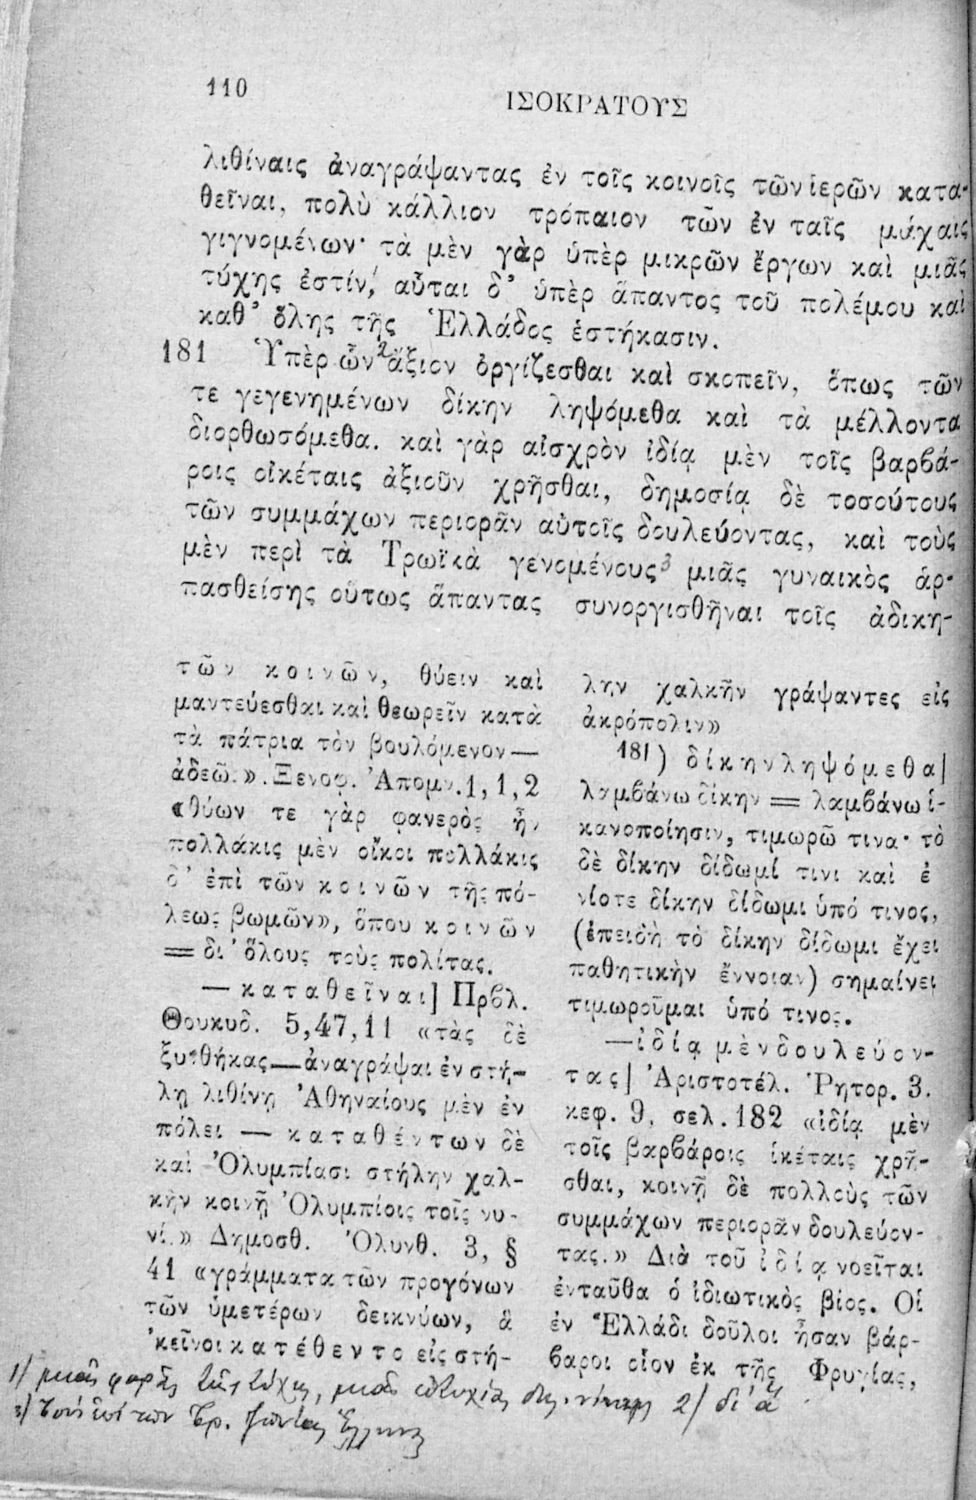 110
ΙΣΟΚΡΑΤΟΥΣ
λιθίναις ἀναγράψαντας ἐν τοῖς κοινοῖς τῶν ἱερῶν κατα-
θεῖναι, πολὺ κάλλιον τρόπαιον τῶν ἐν ταῖς μάχαις
γιγνομένων· τὰ μὲν γὰρ ὑπὲρ μικρῶν ἔργων καὶ μιᾶς
τύχης ἐστίν,¹ αὗται δ’ ὑπὲρ ἅπαντος τοῦ πολέμου καὶ
καθ’ ὅλης τῆς Ἑλλάδος ἑστήκασιν.
181 Ὑπὲρ ὧν² ἄξιον ὀργίζεσθαι καὶ σκοπεῖν, ὅπως τῶν
τε γεγενημένων δίκην ληψόμεθα καὶ τὰ μέλλοντα
διορθωσόμεθα. καὶ γὰρ αἰσχρὸν ἰδίᾳ μὲν τοῖς βαρβά-
ροις οἰκέταις ἀξιοῦν χρῆσθαι, δημοσίᾳ δὲ τοσούτους
τῶν συμμάχων περιορᾶν αὐτοῖς δουλεύοντας, καὶ τοὺς
μὲν περὶ τὰ Τρωϊκὰ γενομένους³ μιᾶς γυναικὸς ἁρ-
πασθείσης οὕτως ἅπαντας συνοργισθῆναι τοῖς ἀδικη-
τῶν κοινῶν, θύειν καὶ
μαντεύεσθαι καὶ θεωρεῖν κατὰ
τὰ πάτρια τὸν βουλόμενον—
ἀδεῶς». Ξενοφ. Ἀπομν. 1, 1, 2
«θύων τε γὰρ φανερὸς ἦν
πολλάκις μὲν οἴκοι πολλάκις
δ’ ἐπὶ τῶν κοινῶν τῆς πό-
λεως βωμῶν», ὅπου κοινῶν
= δι’ ὅλους τοὺς πολίτας.
— καταθεῖναι] Πρβλ.
Θουκυδ. 5,47,11 «τὰς δὲ
ξυνθήκας—ἀναγράψαι ἐν στή-
λῃ λιθίνῃ Ἀθηναίους μὲν ἐν
πόλει — καταθέντων δὲ
καὶ Ὀλυμπίασι στήλην χαλ-
κῆν κοινῇ Ὀλυμπίοις τοῖς νυ-
νί.» Δημοσθ. Ὀλυνθ. 3, §
41 «γράμματα τῶν προγόνων
τῶν ὑμετέρων δεικνύων, ἃ
’κεῖνοι κατέθεντο εἰς στή-
λην χαλκῆν γράψαντες εἰς
ἀκρόπολιν»
181) δίκην ληψόμεθα]
λαμβάνω δίκην = λαμβάνω ἱ-
κανοποίησιν, τιμωρῶ τινα· τὸ
δὲ δίκην δίδωμί τινι καὶ ἐ
νίοτε δίκην δίδωμι ὑπό τινος,
(ἐπειδὴ τὸ δίκην δίδωμι ἔχει
παθητικὴν ἔννοιαν) σημαίνει
τιμωροῦμαι ὑπό τινος.
—ἰδίᾳ μὲν δουλεύον-
τας] Ἀριστοτέλ. Ῥητορ. 3.
κεφ. 9, σελ. 182 «ἰδίᾳ μὲν
τοῖς βαρβάροις ἱκέταις χρῆ-
σθαι, κοινῇ δὲ πολλοὺς τῶν
συμμάχων περιορᾶν δουλεύον-
τας.» Διὰ τοῦ ἰδίᾳ νοεῖται
ἐνταῦθα ὁ ἰδιωτικὸς βίος. Οἱ
ἐν Ἑλλάδι δοῦλοι ἦσαν βάρ-
βαροι οἷον ἐκ τῆς Φρυγίας,
1) μιᾶς φορᾶς τῆς τύχης, μιᾶς 2) δι’ ἃ
3)